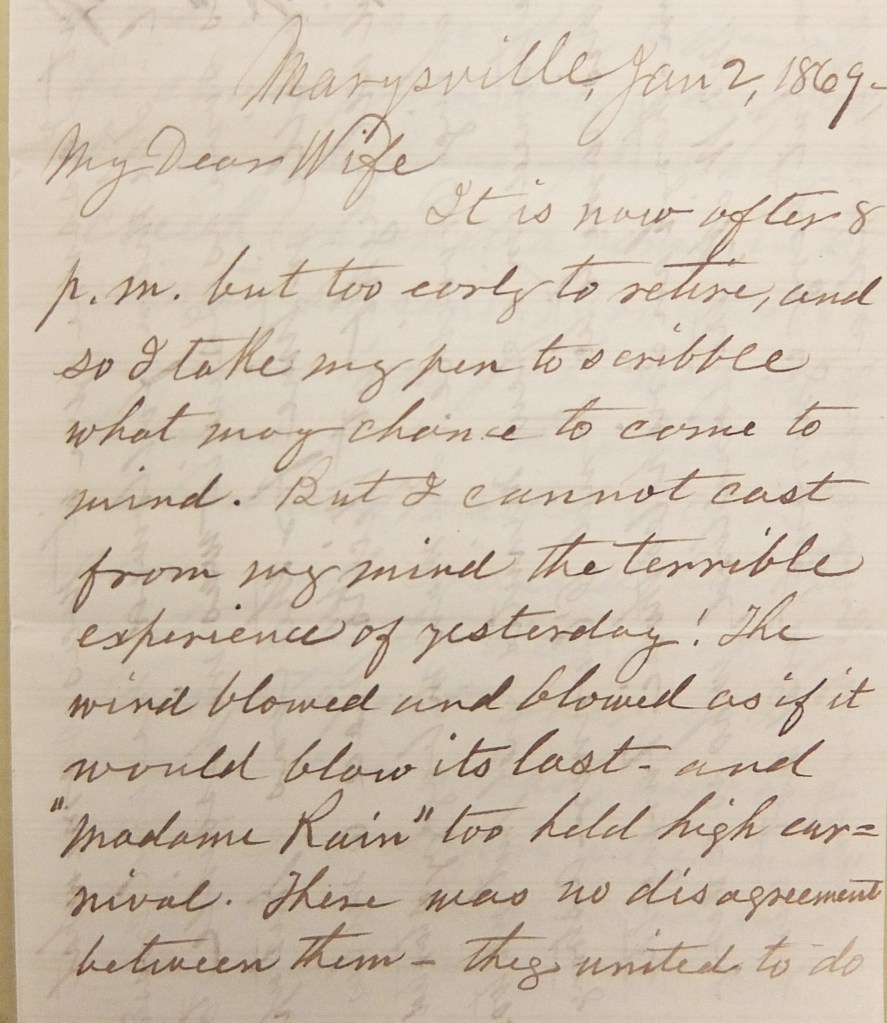 Marysville, Jan 2, 1869-
My Dear Wife
It is now after 8
p.m. but too early to retire, and
so I take my pen to scribble
what may chance to come to
mind. But I cannot cast
from my mind the terrible
experience of yesterday! The
wind blowed and blowed as if it
would blow its last - and
"Madame Rain" too held high car=
nival. There was no disagreement
between them - they united to do